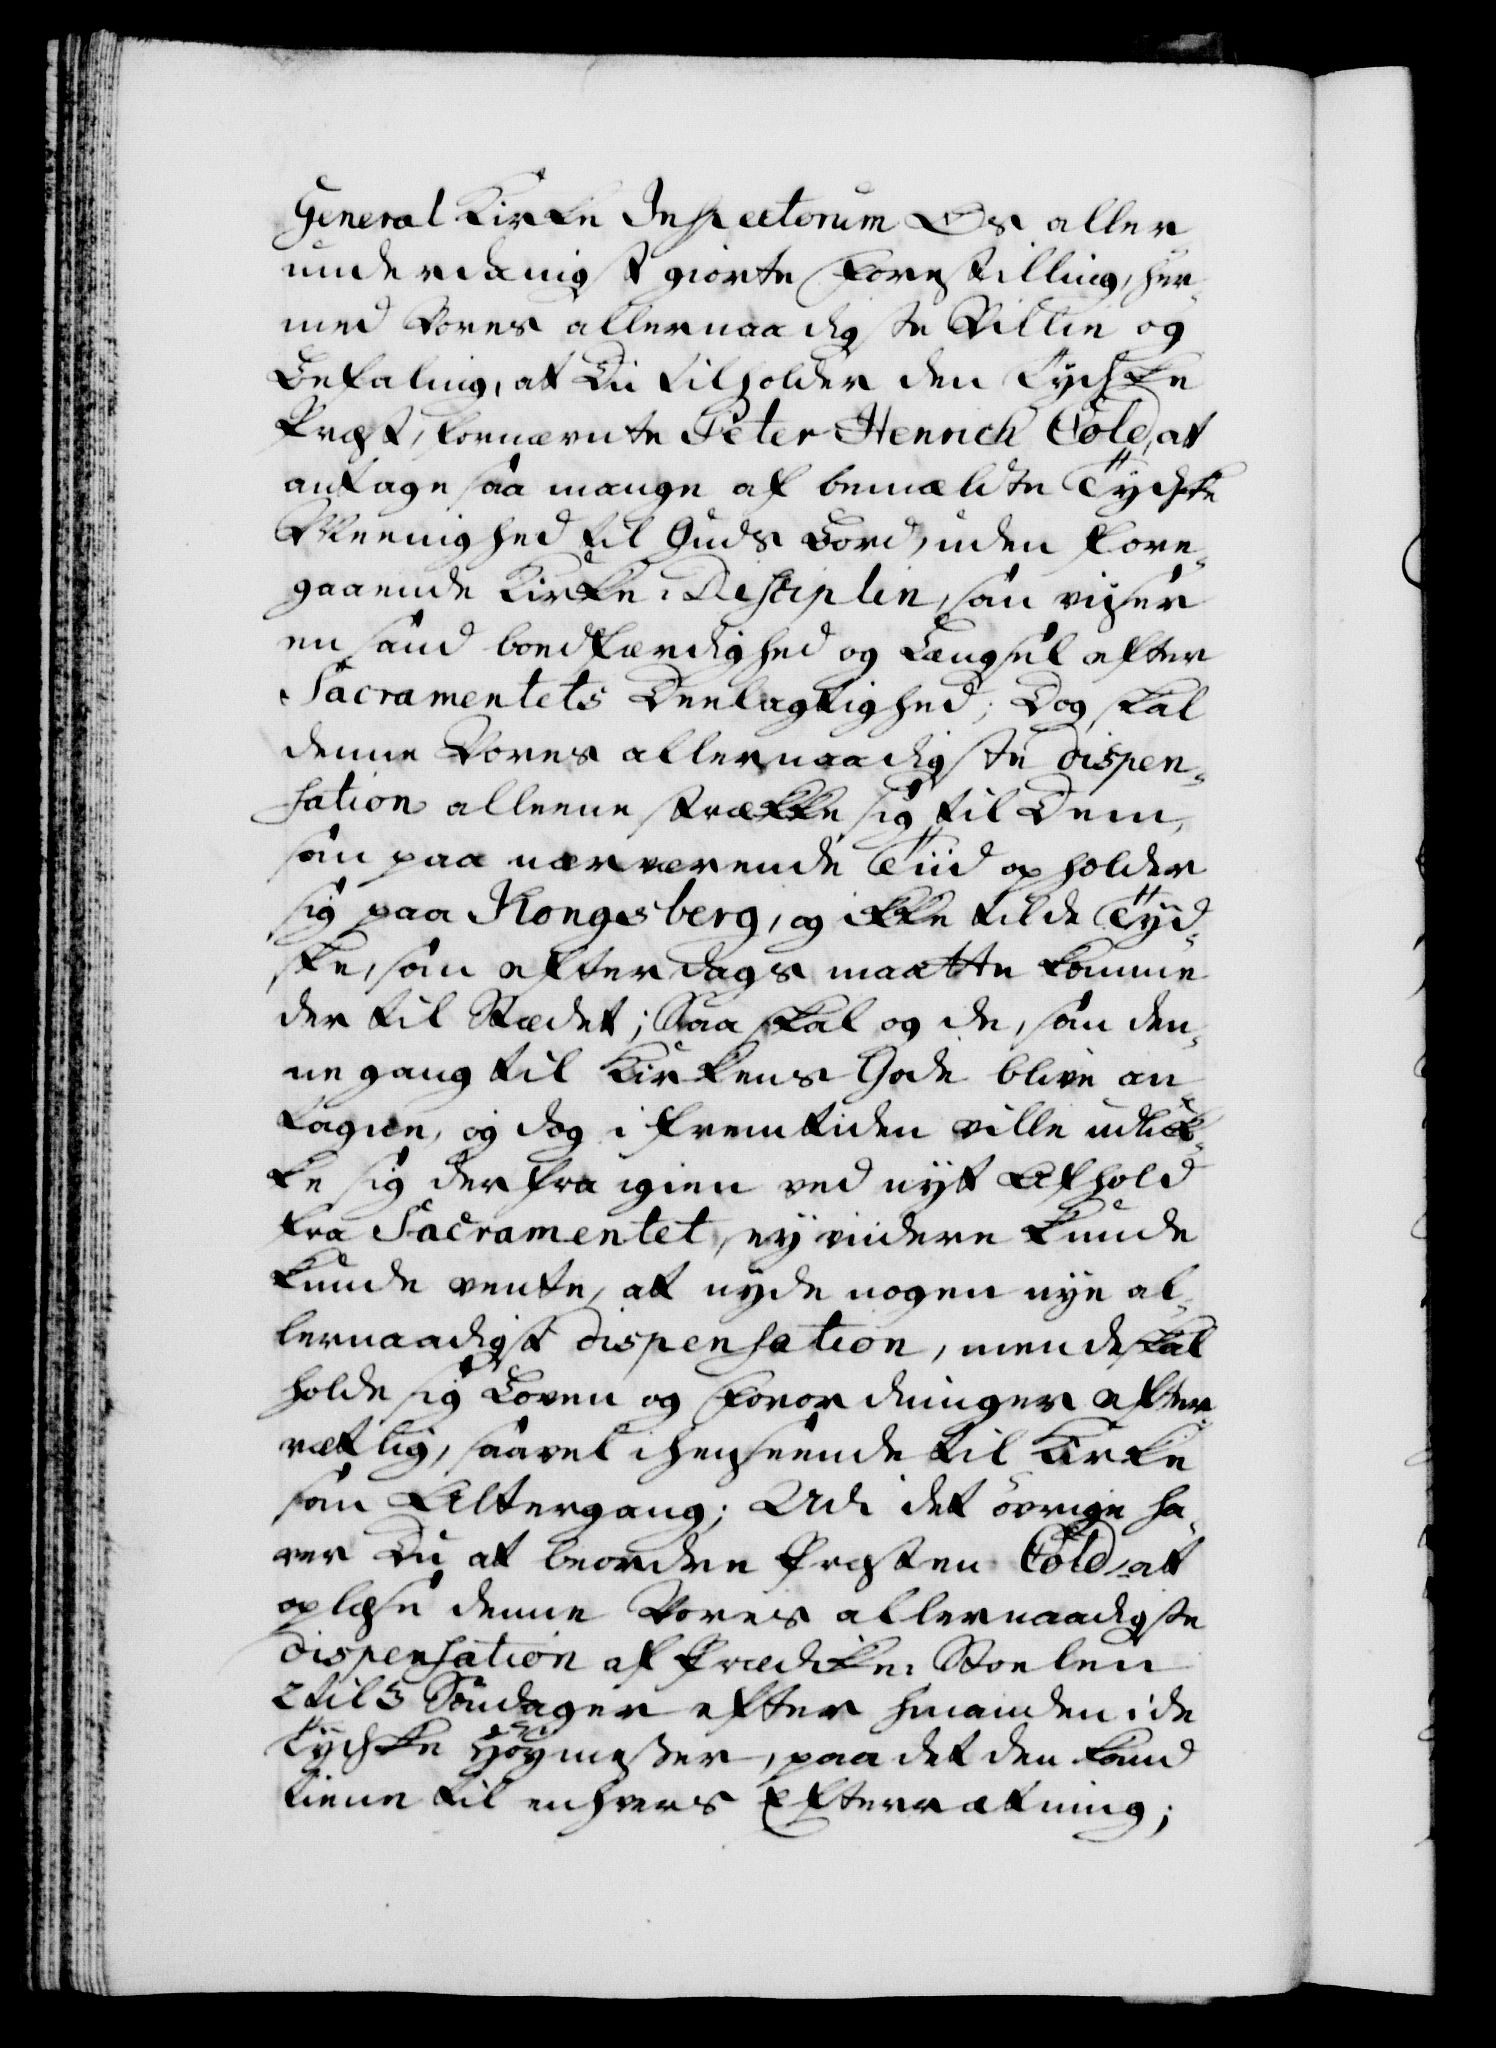 General Kirke Inspectorum Os aller-
underdanigst giorte Forestilling, her-
med Vores allernaadigste Villie og
Befaling, at Du tilholder den Tydske
Præst, fornævnte Peter Henrich Cold, at
antage saa mange af bemældte Tydske
Meenighed til Guds Bord, uden fore-
gaaende Kirke-Disciplin, som viiser
en sand boedfærdighed og Længsel efter
Sacramentets Deelagtighed; Dog skal
denne Vores allernaadigste dispen-
sation alleene strække sig til Dem,
som paa nærværende Tiid opholder
sig paa Kongsberg, og ikke til de Tyd-
ske, som efter dags maatte komme
der til Stædet; Saa skal og de, som den-
ne gang til Kirkens Gode blive an-
tagne, og dog i fremtiden ville udluk-
ke sig der fra igien ved nyt Afhold
fra Sacramentet, ey viidere kunde
kunde vente, at nyde nogen nye al-
lernaadigst dispensation, men de skal
holde sig Loven og Forordninger efter-
rætlig, saavel i henseende til Kirke
som Altergang; Udi det övrige ha-
ver Du at beordre Præsten Cold, at
oplæse denne Vores allernaadigste
dispensation af Prædike-Stoelen
2 til 3 Söndager efter hinanden i de
Tydske Höymesser, paa det den kand
tiene til enhvers Efterrætning;